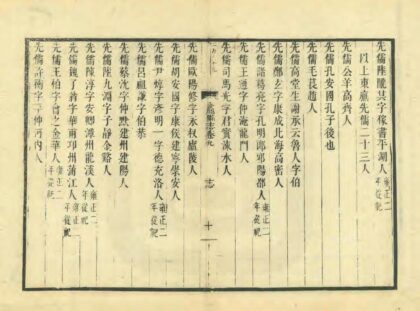 先儒陸隴其字稼書平湖人雍正二年從祀
以上東廡先儒二十三人
先儒公羊高齊人
先儒孔安國孔子後也
先儒毛萇趙人
先儒高堂生謝承云魯人字伯
先儒鄭玄字康成北海高密人
先儒諸葛亮字孔明瑯琊陽都人雍正二年從祀
先儒王通字仲淹龍門人
先儒司馬光字君實涑水人
志 十
先儒歐陽修字永叔廬陵人
先儒胡安國字康侯建寧崇安人
先儒尹焞字彥明一字德充洛人雍正二年從祀
先儒呂祖謙字伯恭
先儒蔡沈字仲默建州建陽人
先儒陸九淵字子靜金谿人
先儒陳淳字安卿漳州龍溪人雍正二年從祀
先儒魏了翁字華甫邛州蒲江人雍正二年從祀
先儒王柏字會之金華人雍正二年從祀
先儒許衡字平仲河內人